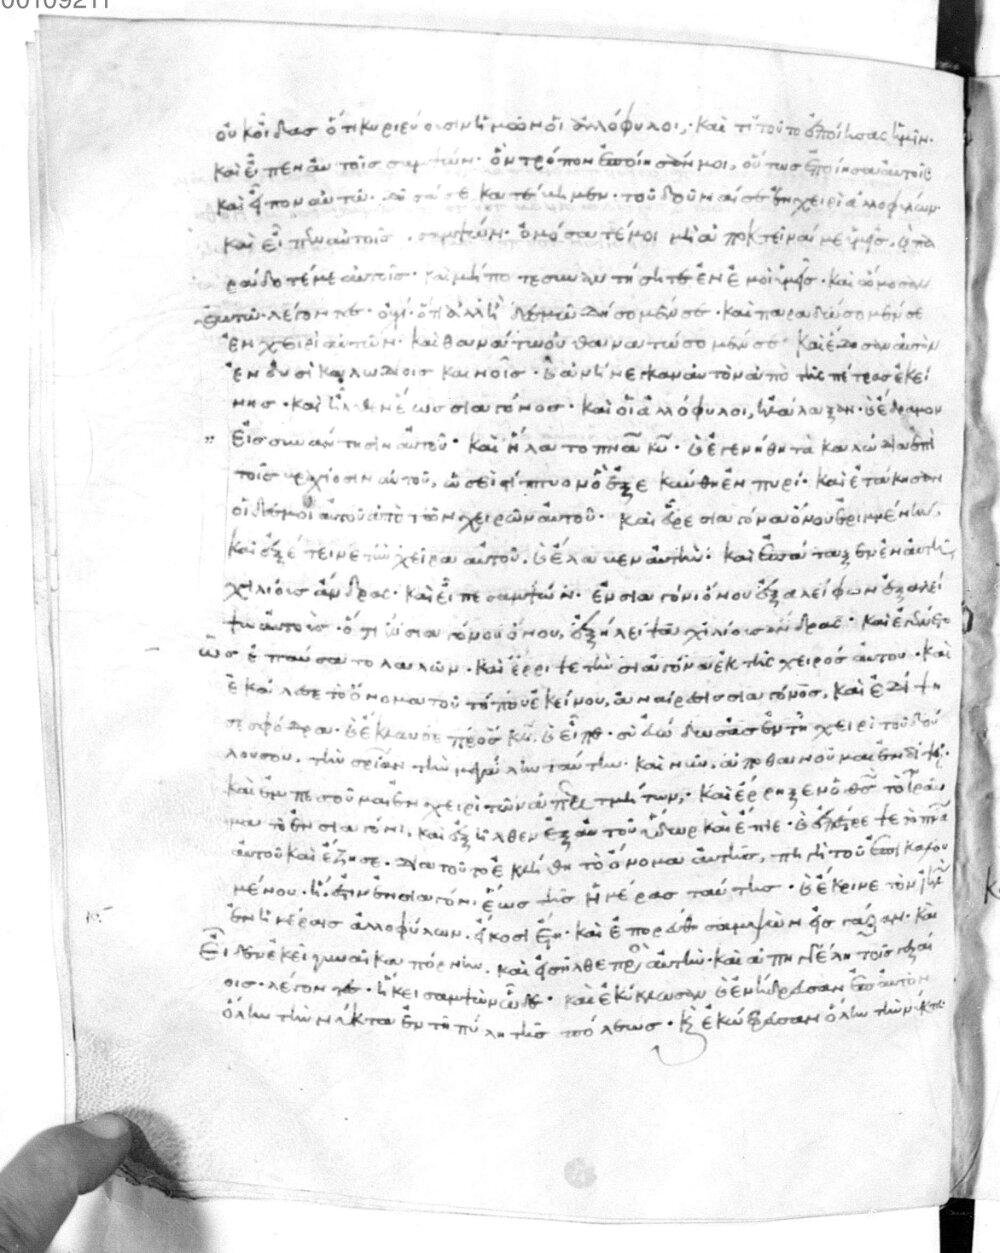 00109211
οὐκ οἶδας ὅτι κυριεύουσιν ἡμῶν οἱ ἀλλόφυλοι, καὶ τί τοῦτο ἐποίησας ἡμῖν.
καὶ εἶπεν αὐτοῖς σαμψών. ὃν τρόπον ἐποίησάν μοι, οὕτως ἐποίησα αὐτοῖς
καὶ εἶπον αὐτῶ. δῆσαί σε κατέβημεν. τοῦ δοῦναί σε ἐν χειρὶ ἀλλοφύλων.
καὶ εἶπεν αὐτοῖς σαμψών. ὀμόσατέ μοι μὴ ἀποκτεῖναί με ὑμεῖς. καὶ πα
ράδοτέ με αὐτοῖς. καὶ μήποτε συναντήσητε ἐν ἐμοὶ ὑμεῖς. καὶ ὤμοσαν
αὐτῶ λέγοντες. οὐχί. ὅτι ἀλλ' ἢ δεσμῶ δήσομέν σε. καὶ παραδώσομέν σε
ἐν χειρὶ αὐτῶν. καὶ θανάτω οὐ θανατώσομέν σε. καὶ ἔδησαν αὐτὸν
ἐν δυσὶ καλωδίοις καινοῖς. καὶ ἀνήνεγκαν αὐτὸν ἀπὸ τῆς πέτρας ἐκεί
νης. καὶ ἦλθεν ἕως σιαγόνος. καὶ οἱ ἀλλόφυλοι, ἠλάλαξαν. καὶ ἔδραμον
εἰς συνάντησιν αὐτοῦ. καὶ ἥλατο πνα κυ. καὶ ἐγενήθη τὰ καλώδια ἐπὶ
τοῖς βραχίοσιν αὐτοῦ, ὡσεὶ στιππυον ὃ ἐξεκαύθη ἐν πυρί. καὶ ἐτάκησαν
οἱ δεσμοὶ αὐτοῦ ἀπὸ τῶν χειρῶν αὐτοῦ. καὶ εὗρε σιαγόνα ὄνου ἐριμμένην,
καὶ ἐξέτεινε τὴν χεῖρα αὐτοῦ. καὶ ἔλαβεν αὐτήν. καὶ ἐπάταξεν ἐν αὐτῆ
χιλίους ἄνδρας. καὶ εἶπε σαμψών. ἐν σιαγόνι ὄνου ἐξαλείφων ἐξαλεί
ψω αὐτούς. ὅτι ἐν σιαγόνι ὄνου, ἐξήλειψα χιλίους ἄνδρας. καὶ ἐγένετο
ὡς ἐπαύσατο λαλῶν. καὶ ἔρριψε τὴν σιαγόνα ἐκ τῆς χειρὸς αὐτοῦ. καὶ
ἐκάλεσε τὸ ὄνομα τοῦ τόπου ἐκείνου, ἀναίρεσις σιαγόνος. καὶ ἐδίψη
σε σφόδρα. καὶ ἔκλαυσε πρὸς κν. καὶ εἶπε. σὺ ἔδωκας ἐν τῆ χειρὶ τοῦ δού
λου σου, τὴν σρίαν τὴν μεγάλην ταύτην. καὶ νῦν, ἀποθανοῦμαι ἐν δίψει.
καὶ ἐμπεσοῦμαι ἐν χειρὶ τῶν ἀπεριτμήτων. καὶ ἔρρηξεν ὁ θς τὸ τραῦ
μα τὸ ἐν σιαγόνι, καὶ ἐξῆλθεν ἐξ αὐτοῦ ὕδωρ καὶ ἔπιε. καὶ ἐπέστρεψε τὸ πνα
αὐτοῦ καὶ ἔζησε. διὰ τοῦτο ἐκλήθη τὸ ὄνομα αὐτῆς, πηγὴ τοῦ ἐπικαλου
μένου. ἥ ἐστιν ἐν σιαγόνι ἕως τῆς ἡμέρας ταύτης. καὶ ἔκρινε τὸν ιηλ
ἐν ἡμέραις ἀλλοφύλων. εἴκοσι ἔτη. καὶ ἐπορεύθη σαμψὼν εἰς γάζαν. καὶ
εἶδεν ἐκεῖ γυναῖκα πόρνην. καὶ εἰσῆλθε πρὸς αὐτήν. καὶ ἀπηγγέλη τοῖς γαζαί
οις. λέγοντες. ἥκει σαμψὼν ὧδε. καὶ ἐκύκλωσαν καὶ ἐνήδρευσαν ἐπ' αὐτὸν
ὅλην τὴν νύκτα ἐν τῆ πύλη τῆς πόλεως. καὶ ἐκώφευσαν ὅλην τὴν νύκτα